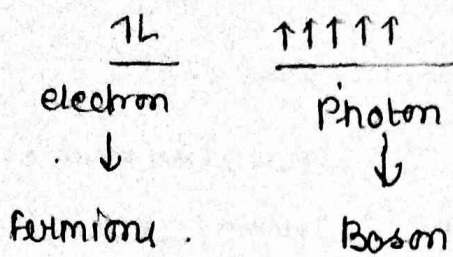 ↿⇂ ↑↑↑↑↑
electron Photon
↓ ↓
Fermions. Boson